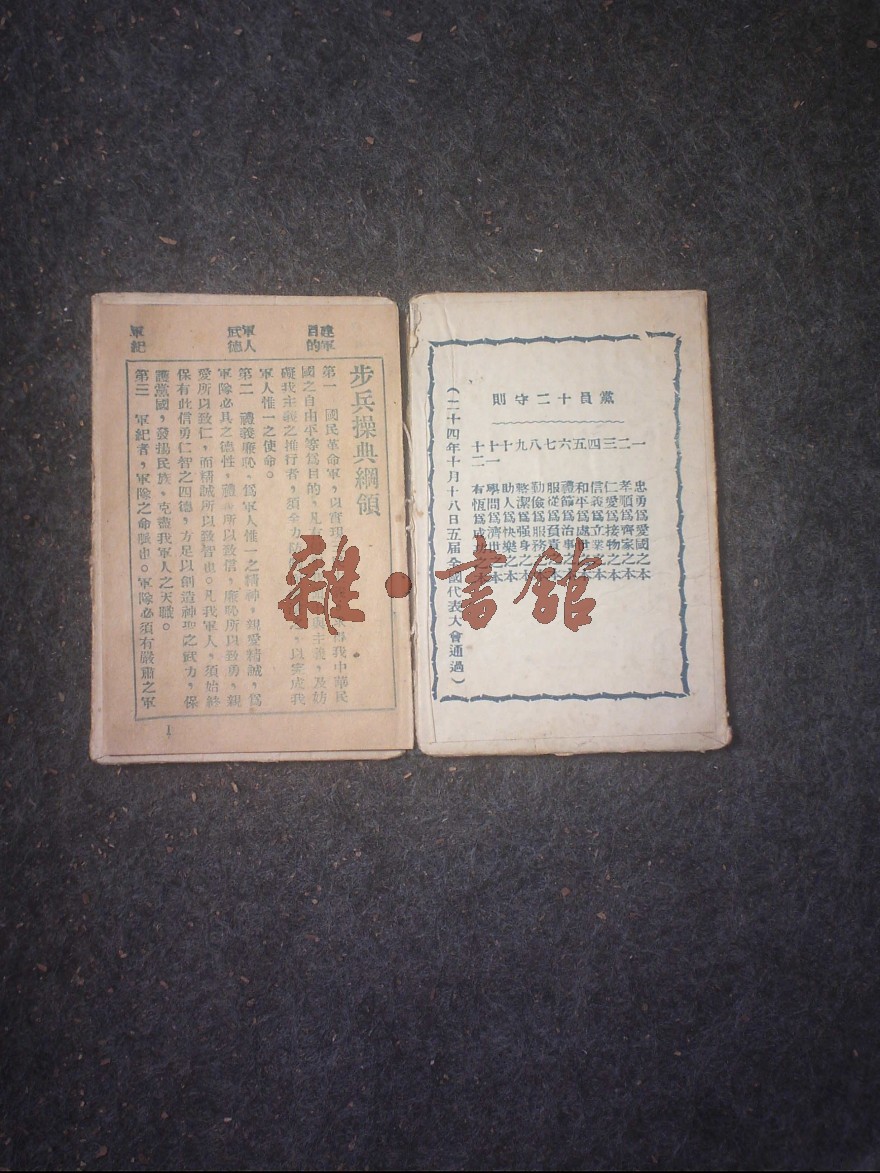 黨員十二守則
一 忠勇為愛國之本
二 孝順為齊家之本
三 仁愛為接物之本
四 信義為立業之本
五 和平為處世之本
六 禮節為治事之本
七 服從為負責之本
八 勤儉為服務之本
九 整潔為强身之本
十 助人為快樂之本
十一 學問為濟世之本
十二 有恆為成之本
（二十四年十月十八日五届全國代表大會通過）
步兵操典綱領
建軍目的
第一 國民革命軍，以實現三我中華民
國之自由平等為目的，凡有主義，及妨
礙我主義之推行者，須全力以完成我
軍人惟一之使命。
軍人武德
第二 禮義廉恥，為軍人惟一之精神，親愛精誠，為
軍隊必具之德性，禮義所以致信，廉恥所以致勇，親
愛所以致仁，而精誠所以致智也。凡我軍人，須始終
保有此信勇仁智之四德，方足以創造神聖之武力，保
護黨國，發揚民族，克盡我軍人之天職。
軍紀
第三 軍紀者，軍隊之命脈也。軍隊必須有嚴肅之軍
一
雜·書館